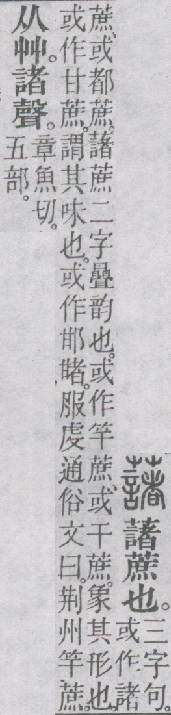 藷 藷蔗也。三字句。或作諸
蔗。或都蔗。藷蔗二字疊韵也。或作竿蔗。或干蔗。象其形也。
或作甘蔗。謂其味也。或作邯䐗。服虔通俗文曰。荆州竿蔗。
从艸。諸聲。章魚切。
五部。